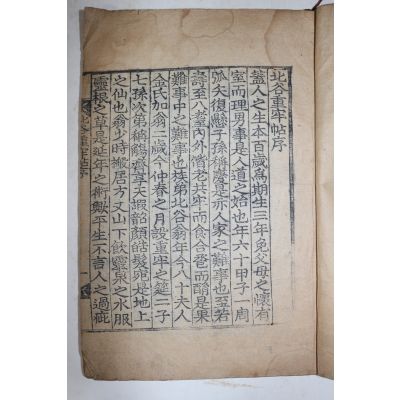 北谷重牢帖序
蓋人之生本百歲爲期生三年免父母之懷有
室而理男事是人道之始也年六十甲子一周
弧矢復懸子孫稱觴是亦人家之難事也至若
壽至八耋內外偕老共牢而食合巹而酳是果
難事中之難事也族弟北谷翁年今八十夫人
金氏加翁二歲今仲春之月設重牢之筵二子
七孫次第稱觴耆韋天嘏韶顏皓髮宛是地上
之仙也翁少時搬居方丈山下飮靈泉之水服
靈根之草是延年之術歟平生不言人之過疵
北谷重牢帖序
一